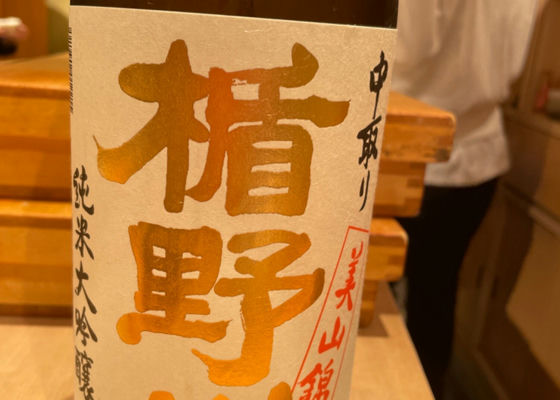 中取り
楯野
美山錦
純米大吟醸